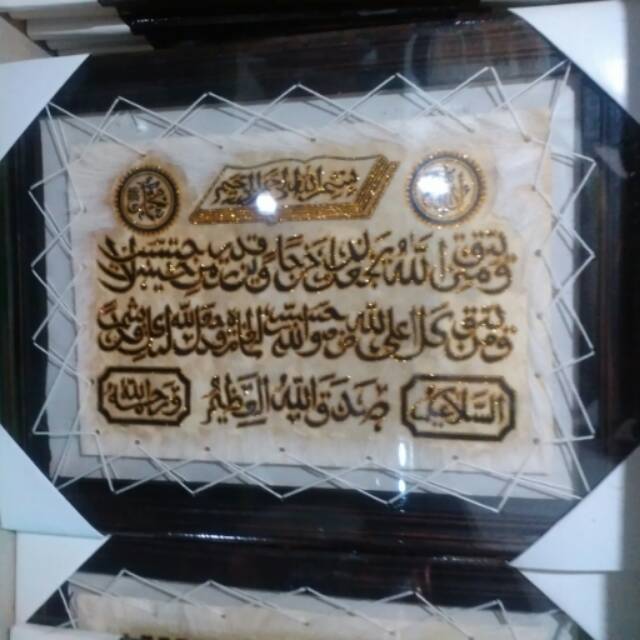 الله
بسم الله الرحمن الرحيم
محمد
ومن يتق الله يجعل له مخرجا ويرزقه من حيث لا يحتسب
ومن يتوكل على الله فهو حسبه ان الله بالغ امره قد
صدق الله العظيم
السلام عليكم
ورحمة الله